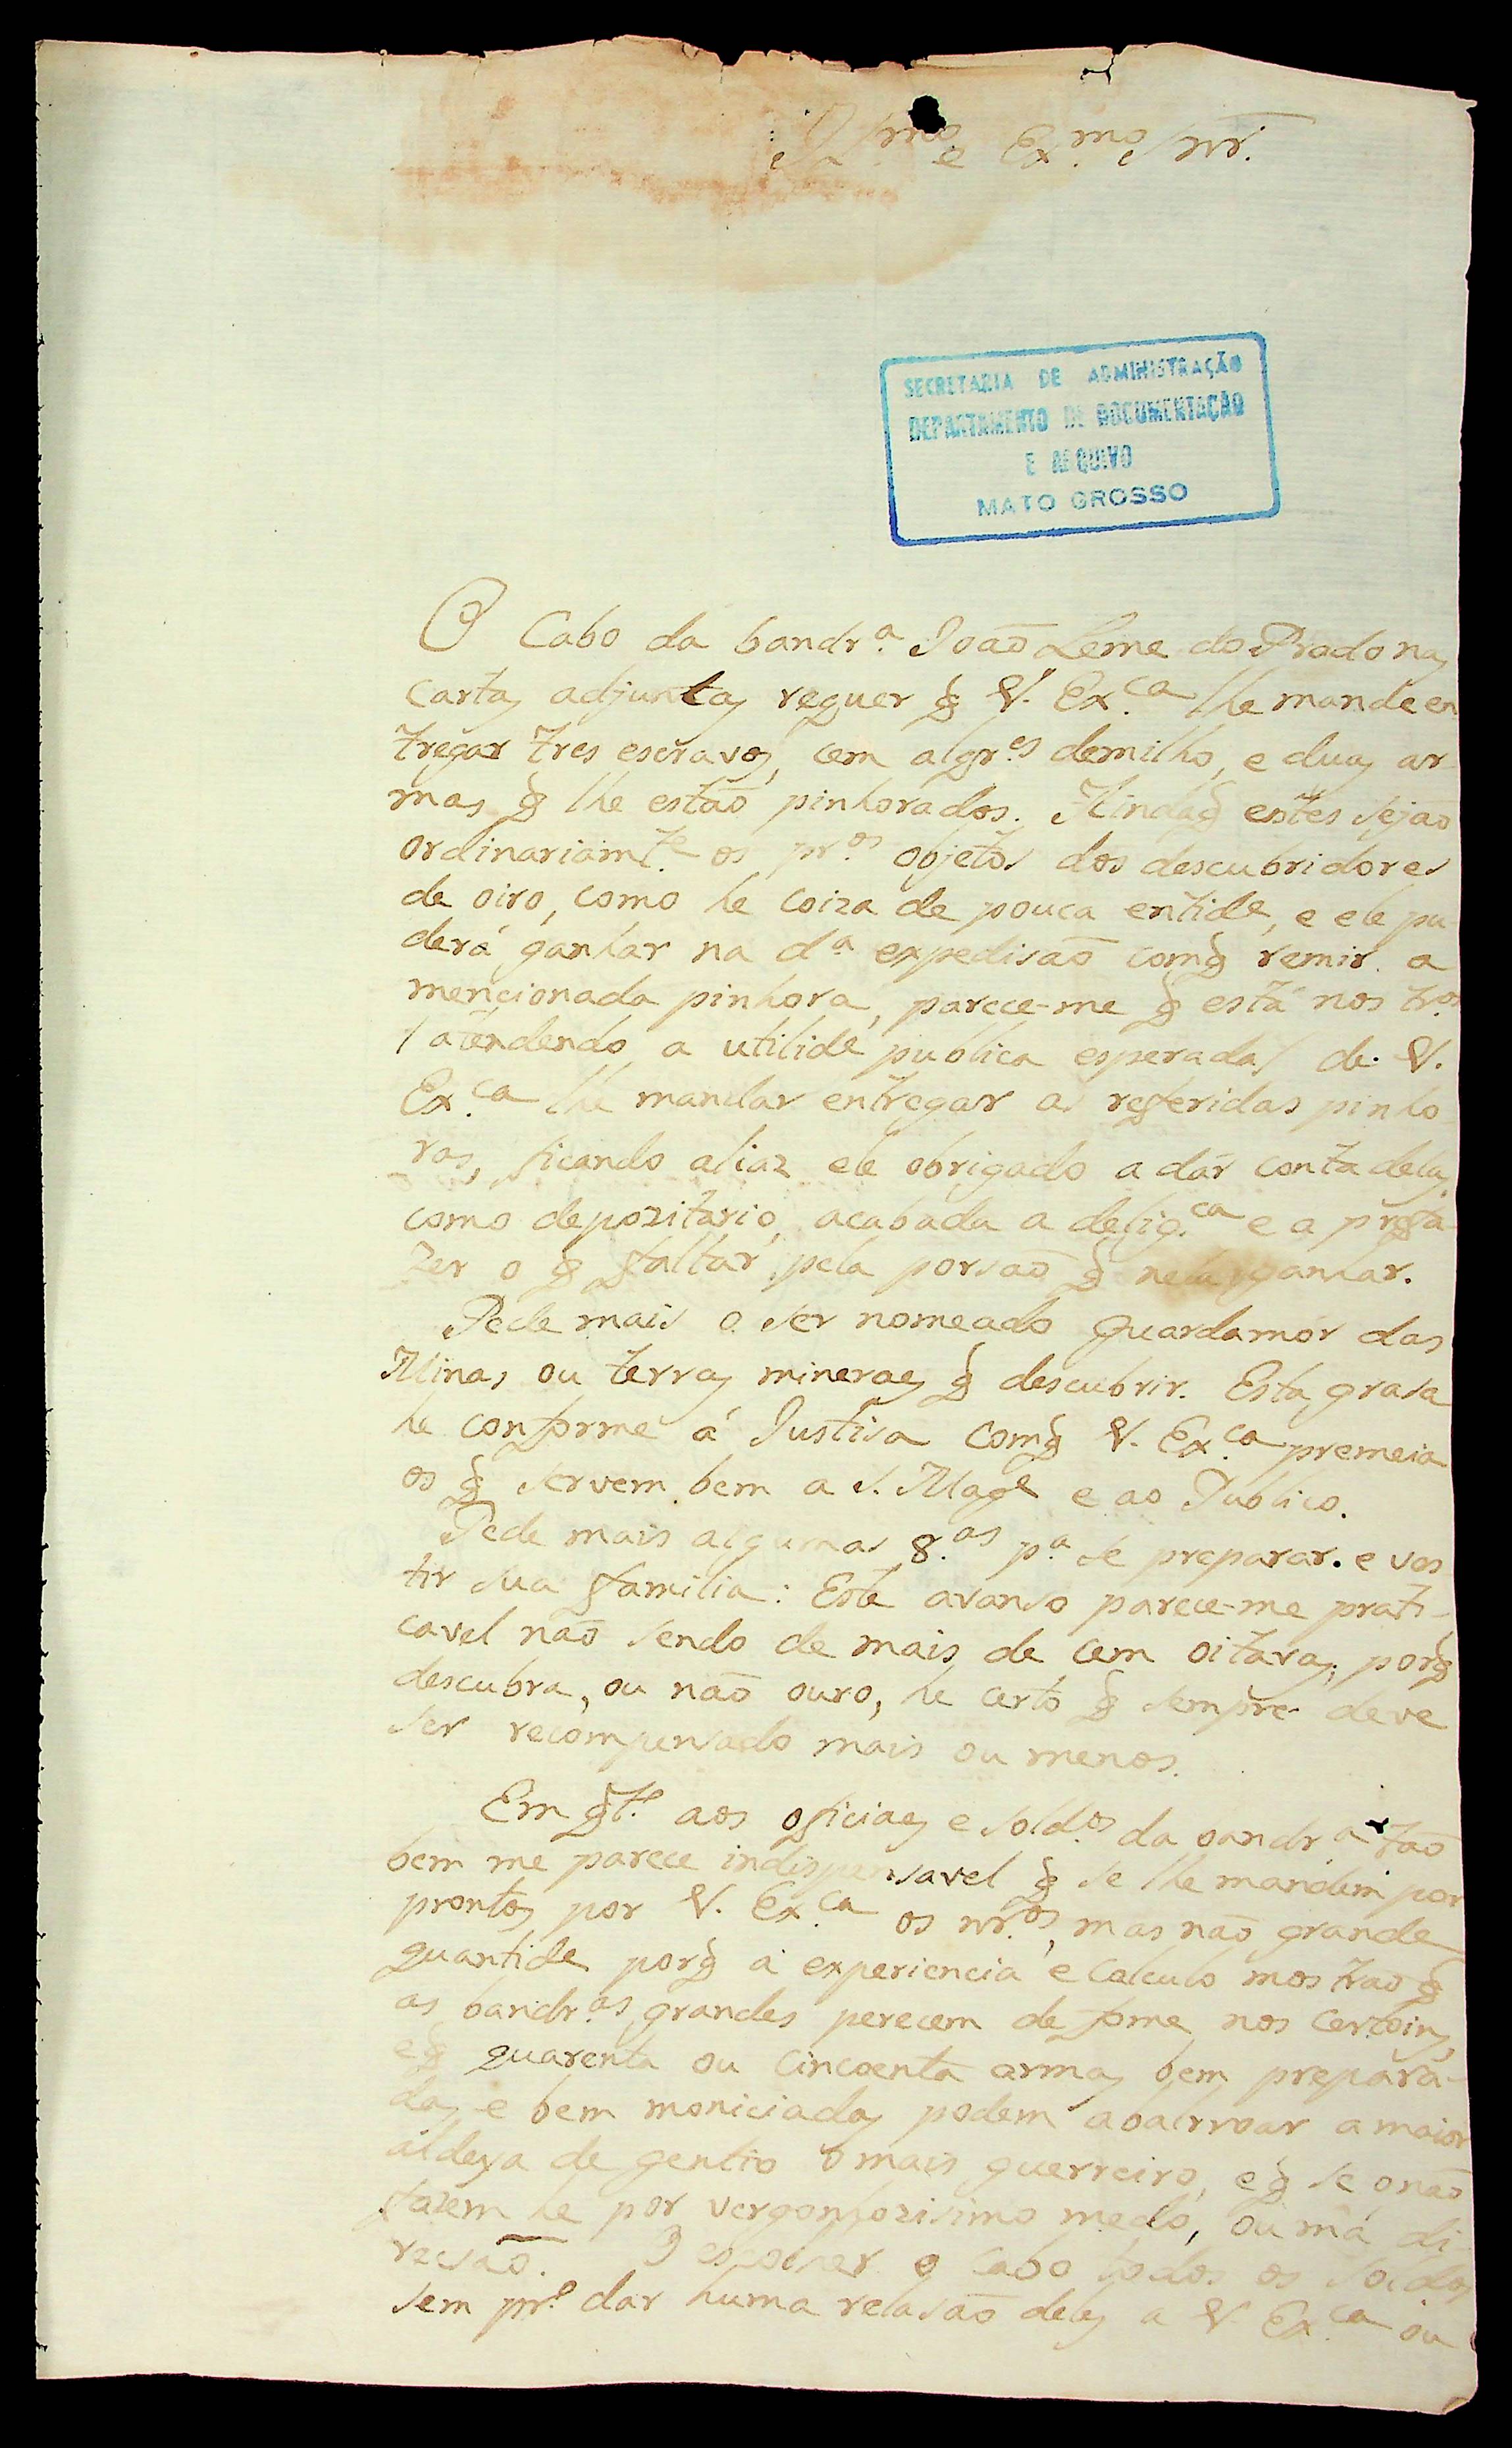 Il.mo e Ex.mo Snr.
SECRETARIA DE ADMINISTRAÇÃO
DEPARTAMENTO DE DOCUMENTAÇÃO
E ARQUIVO
MATO GROSSO
O Cabo da bandr.a João Leme do Prado nas
cartas adjuntas requer q̃ V. Ex.ca lhe mande en
tregar tres escravos, cem alqr.es de milho, e duas ar
mas q̃ lhe estão pinhorados. Aindaq̃ estes sejão
ordinariamt.e os pr.os objetos dos descubridores
de oiro, como he coiza de pouca entide, e ele pu
derá ganhar na d.a expedisão comq̃ remir a
mencionada pinhora, parece-me q̃ está nos tr.os
/atendendo a utilide publica esperada/ de V.
Ex.ca lhe mandar entregar as referidas pinho
ras, ficando aliaz ele obrigado a dár conta delas
como depozitario, acabada a delig.ca e a prefa
zer o q̃ faltar pela porsão q̃ nela ganhar.
Pede mais o ser nomeado Guardamór das
Minas ou terras mineraes q̃ descubrir. Esta grasa
he conforme á Justisa comq̃ V. Ex.ca premeia
os q̃ servem bem a S. Mage e ao Publico.
Pede mais algumas 8.as p.a se preparar. e ves
tir sua familia: Este avanso parece-me prati-
cavel não sendo de mais de cem oitavas; porq̃
descubra, ou não ouro, he certo q̃ sempre deve
ser recompensado mais ou menos.
Em q.to aos oficiaes e sold.os da bandr.a tão
bem me parece indispensavel q̃ se lhe mandem por
prontos por V. Ex.ca os nr.os, mas não grande
quantide porq̃ a experiencia e calculo mostrão q̃
as bandr.as grandes perecem de fome nos certoins,
eq̃ quarenta ou cincoenta armas bem prepara-
das e bem moniciadas podem abalrroar a maior
aldeya de gentio o mais guerreiro, eq̃ se o não
fazem he por vergonhozisimo medo, ou má di
resão. I escolher o Cabo todos os soldos
sem pr.o dar huma relasão deles a V. Ex.ca ou